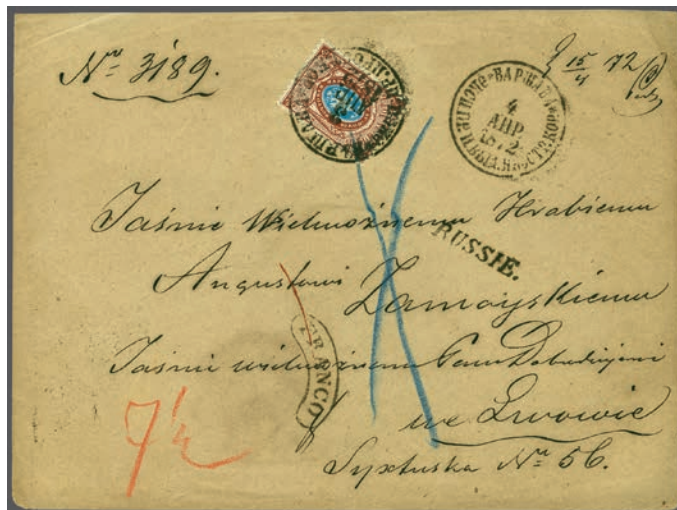 № 3189.
15/4 72
ВАРШАВА
4
АПР.
1872
RUSSIE.
Jaśnie Wielmożnemu Hrabiemu
Augustowi Zamoyskiemu
FRANCO
Jaśnie wielmożnemu Panu Dobrodziejowi
we Lwowie
7 1/4
Syxtuska № 56.